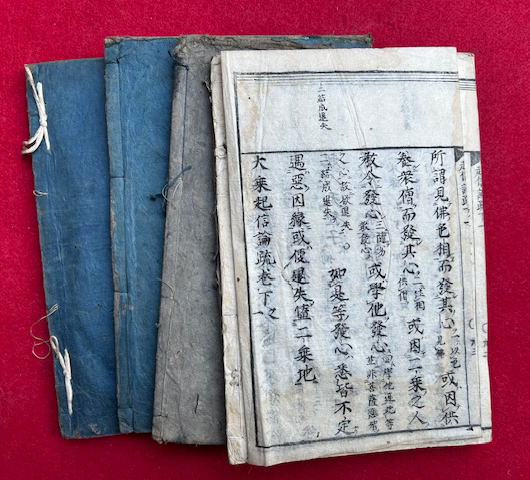 二結成退失
所謂見佛色相而發其心 或因供
養衆僧而發其心 或因二乘之人
教令發心 或學他發心
之心故致退失 如是等發心悉皆不定
二結成退失
遇惡因緣或便退失墮二乘地
大乘起信論疏卷下之一